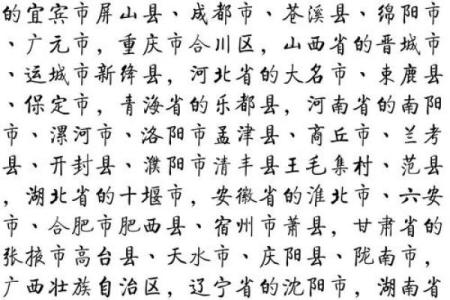 的宜宾市屏山县、成都市、苍溪县、绵阳市
、广元市，重庆市合川区，山西省的晋城市
、运城市新绛县，河北省的大名市、束鹿县
、保定市，青海省的乐都县，河南省的南阳
市、漯河市、洛阳市孟津县、商丘市、兰考
县、开封县、濮阳市清丰县王毛集村、范县
，湖北省的十堰市，安徽省的淮北市、六安
市、合肥市肥西县、宿州市萧县，甘肃省的
张掖市高台县、天水市、庆阳县、陇南市，
广西壮族自治区，辽宁省的沈阳市，湖南省